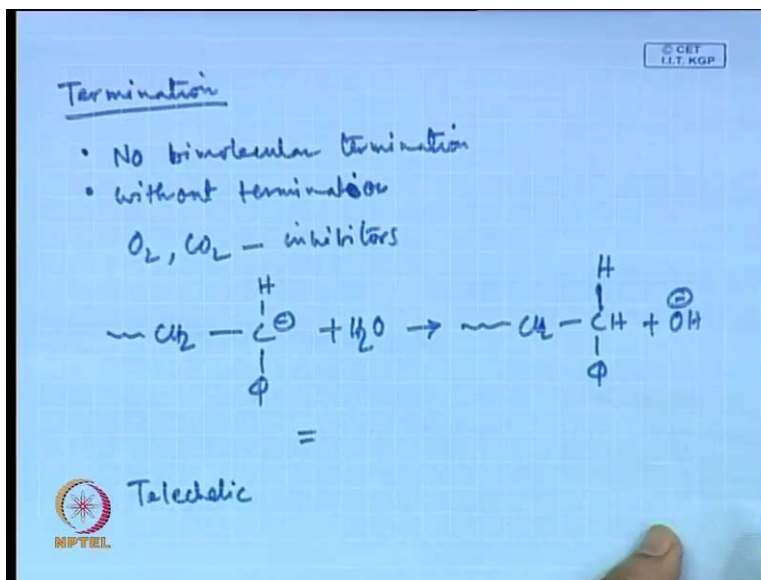 © CET
I.I.T. KGP
Termination
• No bimolecular termination
• without termination
O2, CO2 – inhibitors
H H
~ CH2 – C⊖ + H2O → ~ CH2 – CH + ⊖OH
Φ Φ
=
Telechelic
NPTEL